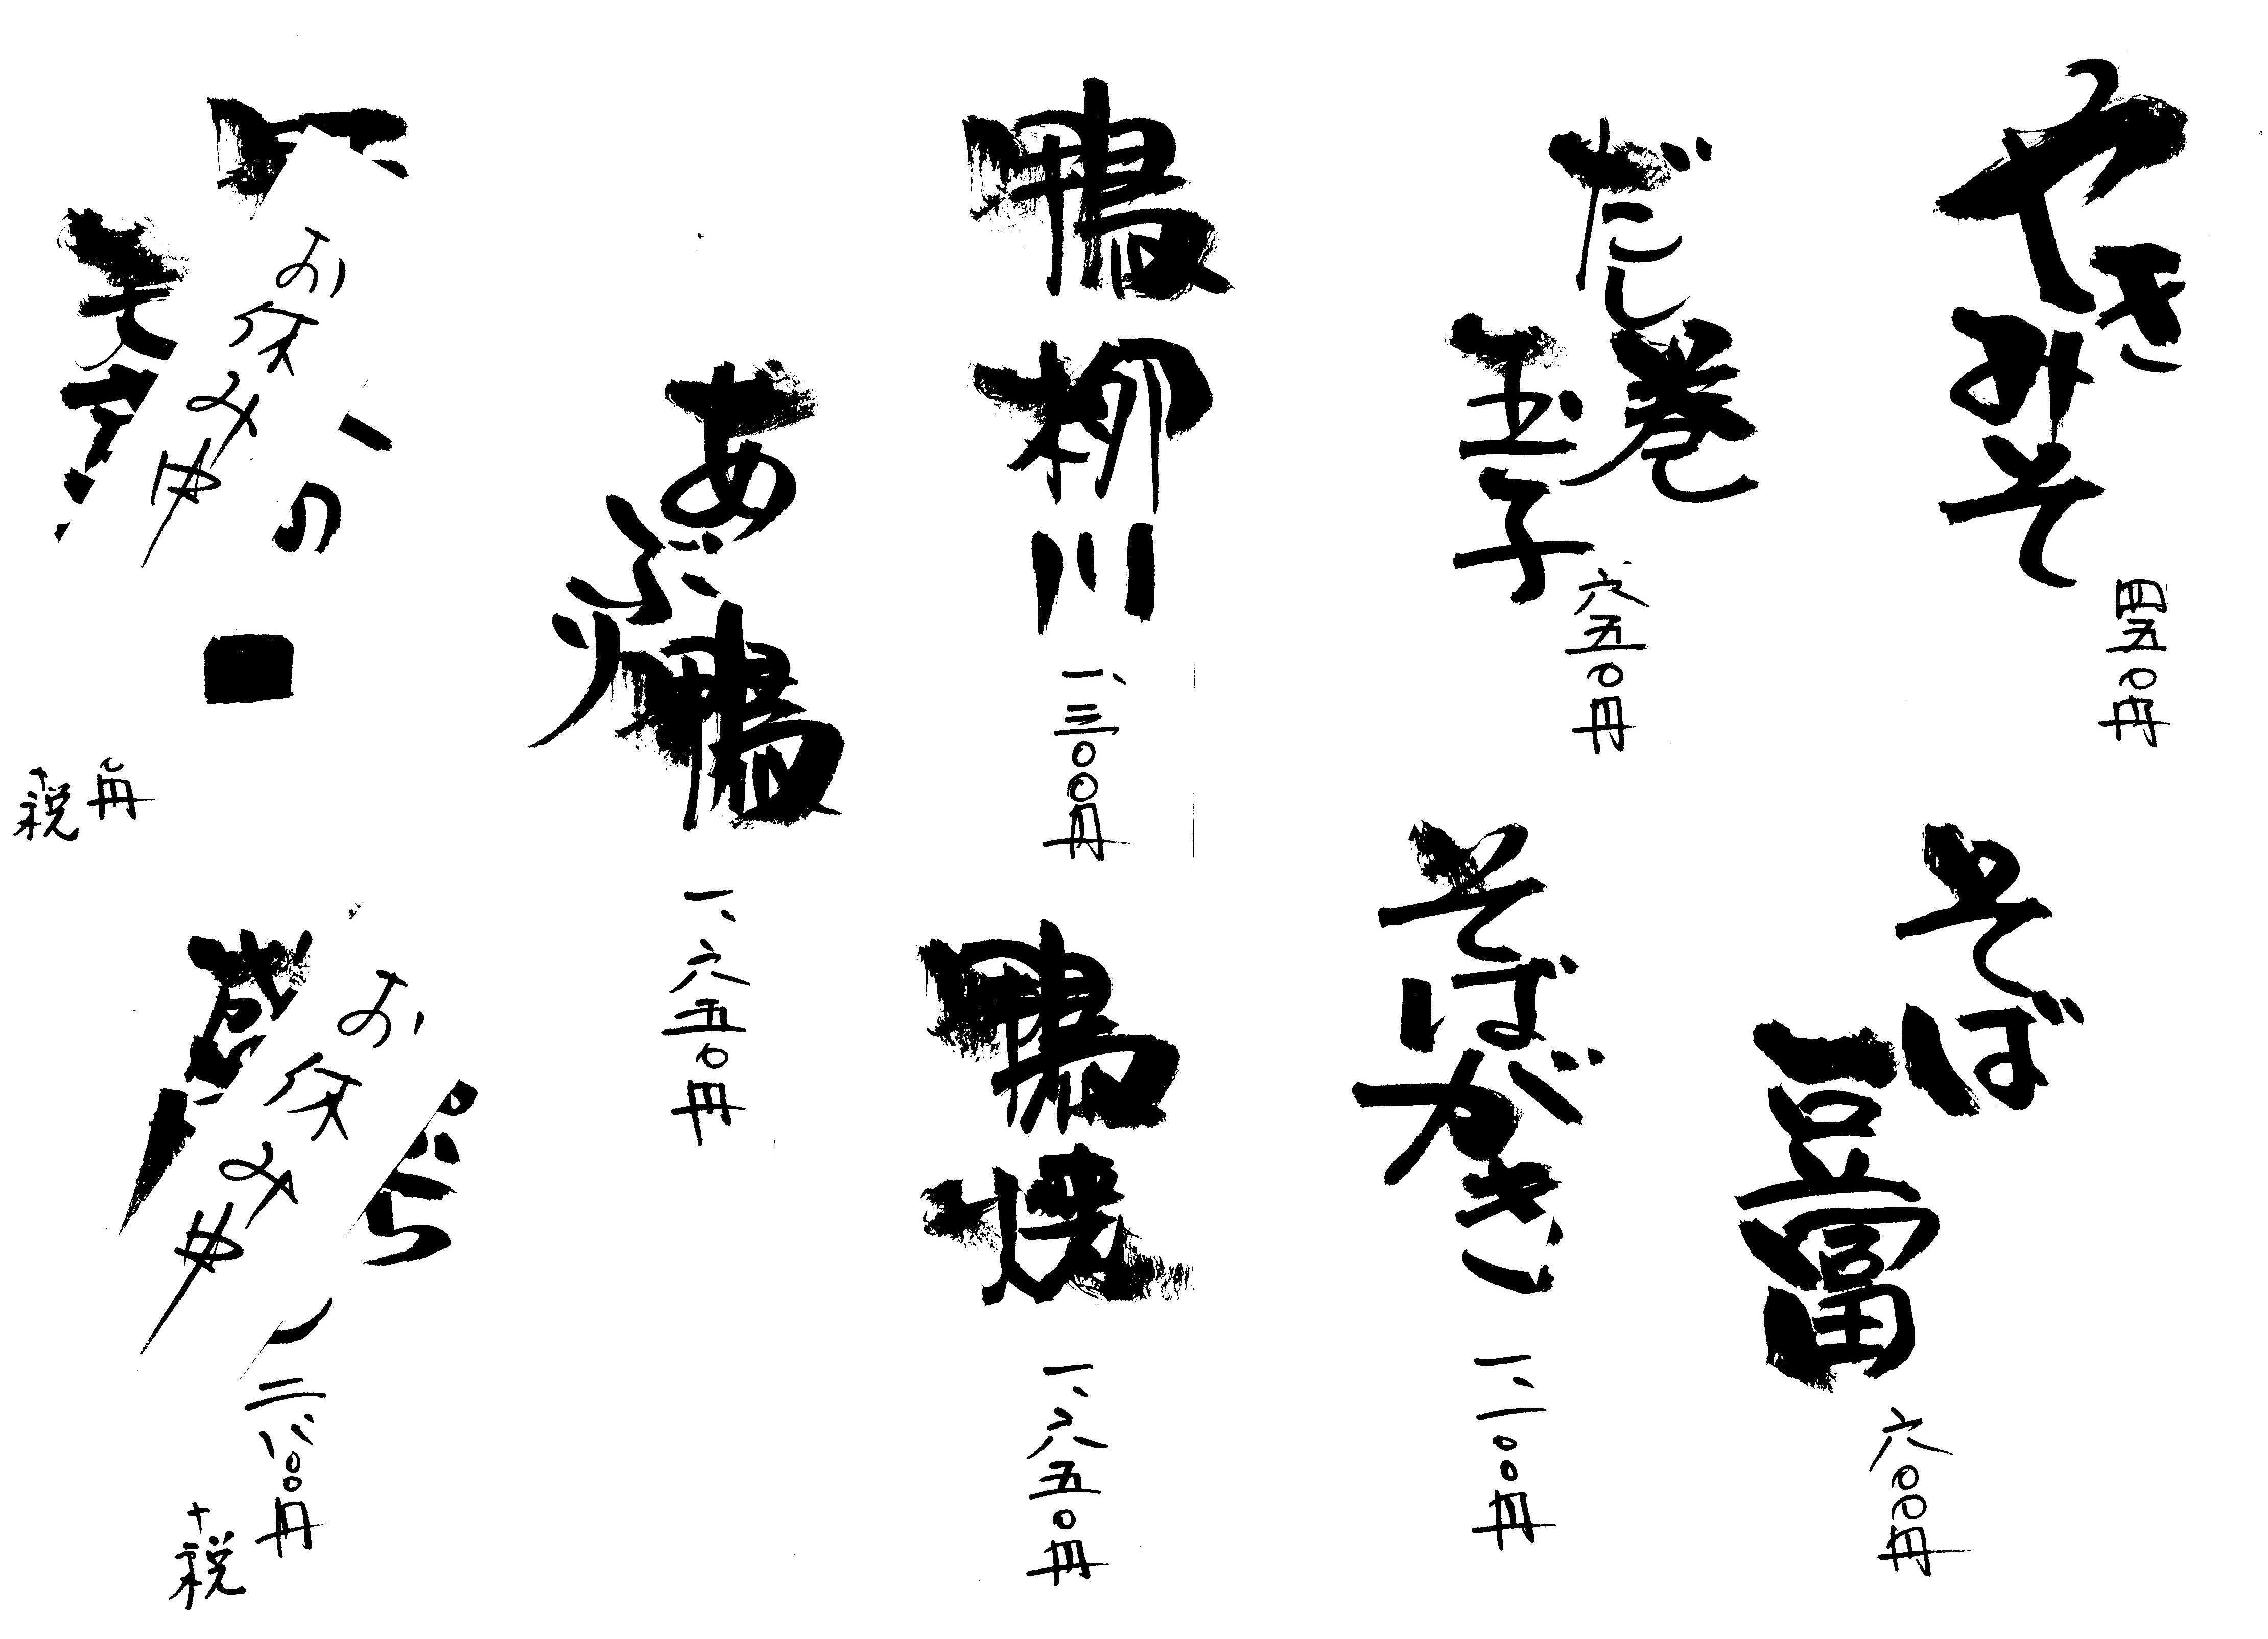 やきみそ
四五〇円
そば豆富
六〇〇円
だし巻
玉子
六五〇円
そばがき
一、一〇〇円
鴨柳川
一、三〇〇円
鴨焼
一、六五〇円
あぶり鴨
一、六五〇円
お休み中
円
+税
お休み中
二、八〇〇円
+税